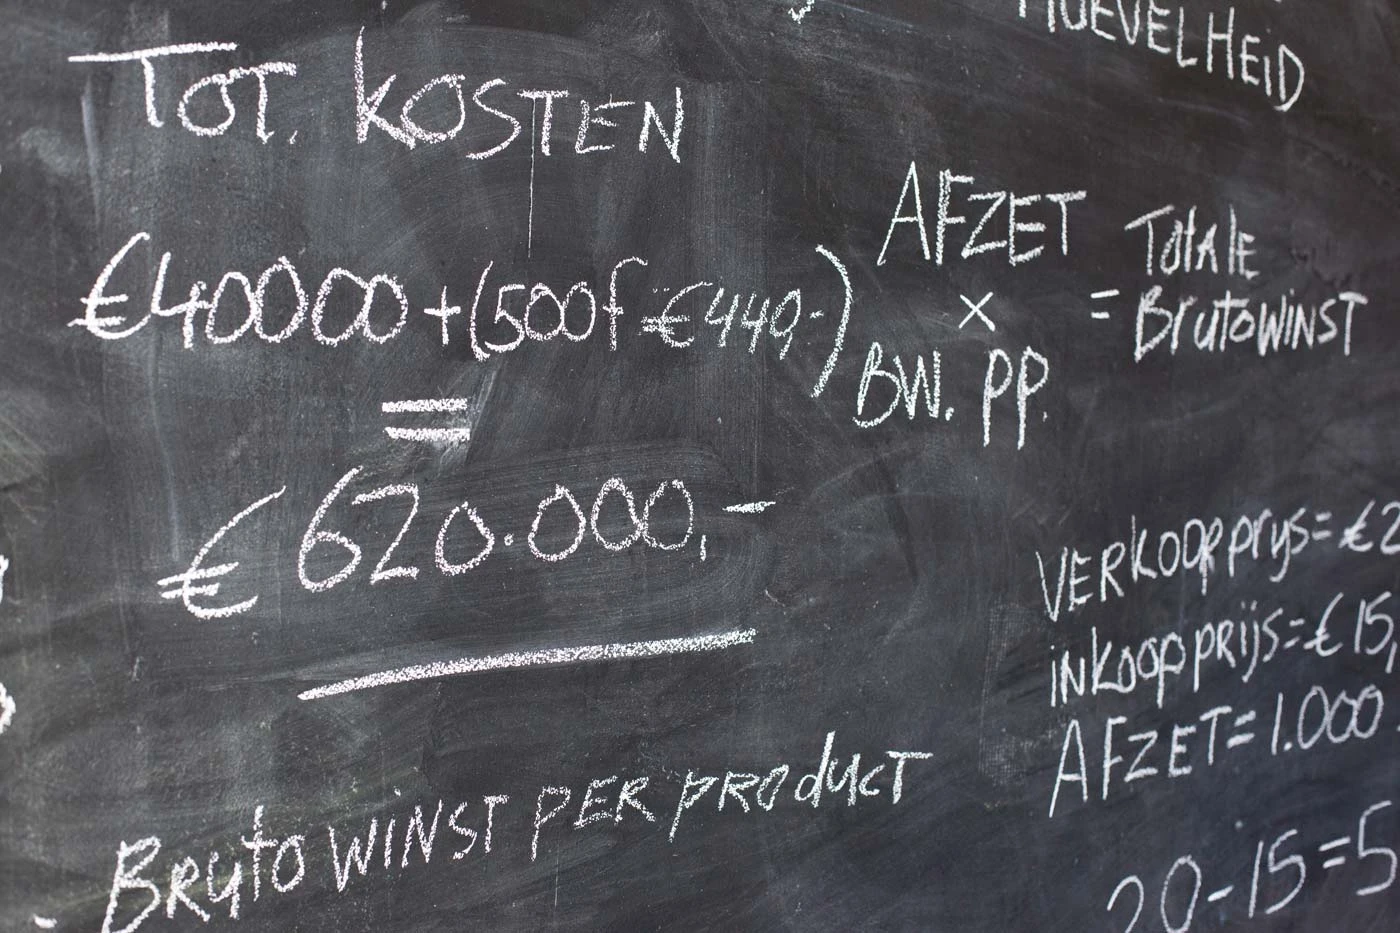 TOT. KOSTEN
€40000+(500f=€440,-)
=
€620.000,-
- BRUTO WINST PER PRODUCT
HOEVELHEID
AFZET
×
BW. PP.
= TOTALE
BRUTOWINST
VERKOOPPRYS=€2
INKOOPPRIJS=€15,
AFZET=1.000
20-15=5